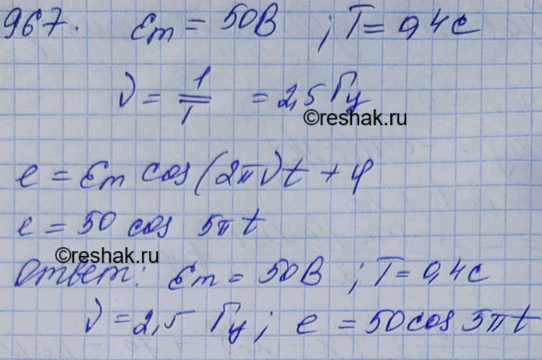 967. Ɛm = 50В ; T = 0,4с
ν = 1/T = 2,5 Гц
©reshak.ru
e = Ɛm cos (2πν)t + φ
e = 50 cos 5πt
©reshak.ru
Ответ: Ɛm = 50В ; T = 0,4с
ν = 2,5 Гц ; e = 50 cos 5πt